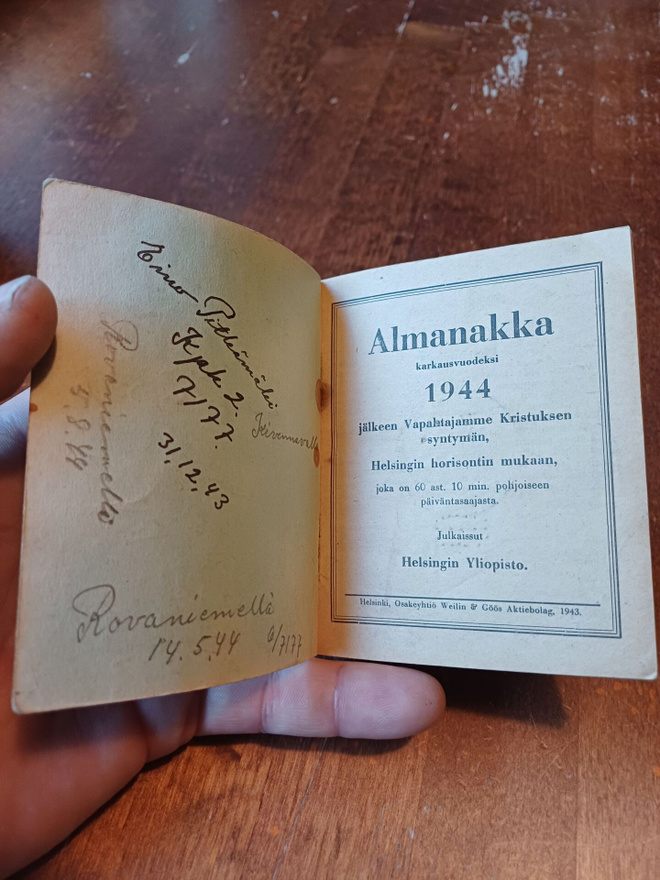 Eino Pitkämäki
Kpk 2.
7/77.
31.12.43
5.8.44
Rovaniemellä
14.5.44 6/7/77
Almanakka
karkausvuodeksi
1944
jälkeen Vapahtajamme Kristuksen
syntymän,
Helsingin horisontin mukaan,
joka on 60 ast. 10 min. pohjoiseen
päiväntasaajasta.
Julkaissut
Helsingin Yliopisto.
Helsinki, Osakeyhtiö Weilin & Göös Aktiebolag, 1943.